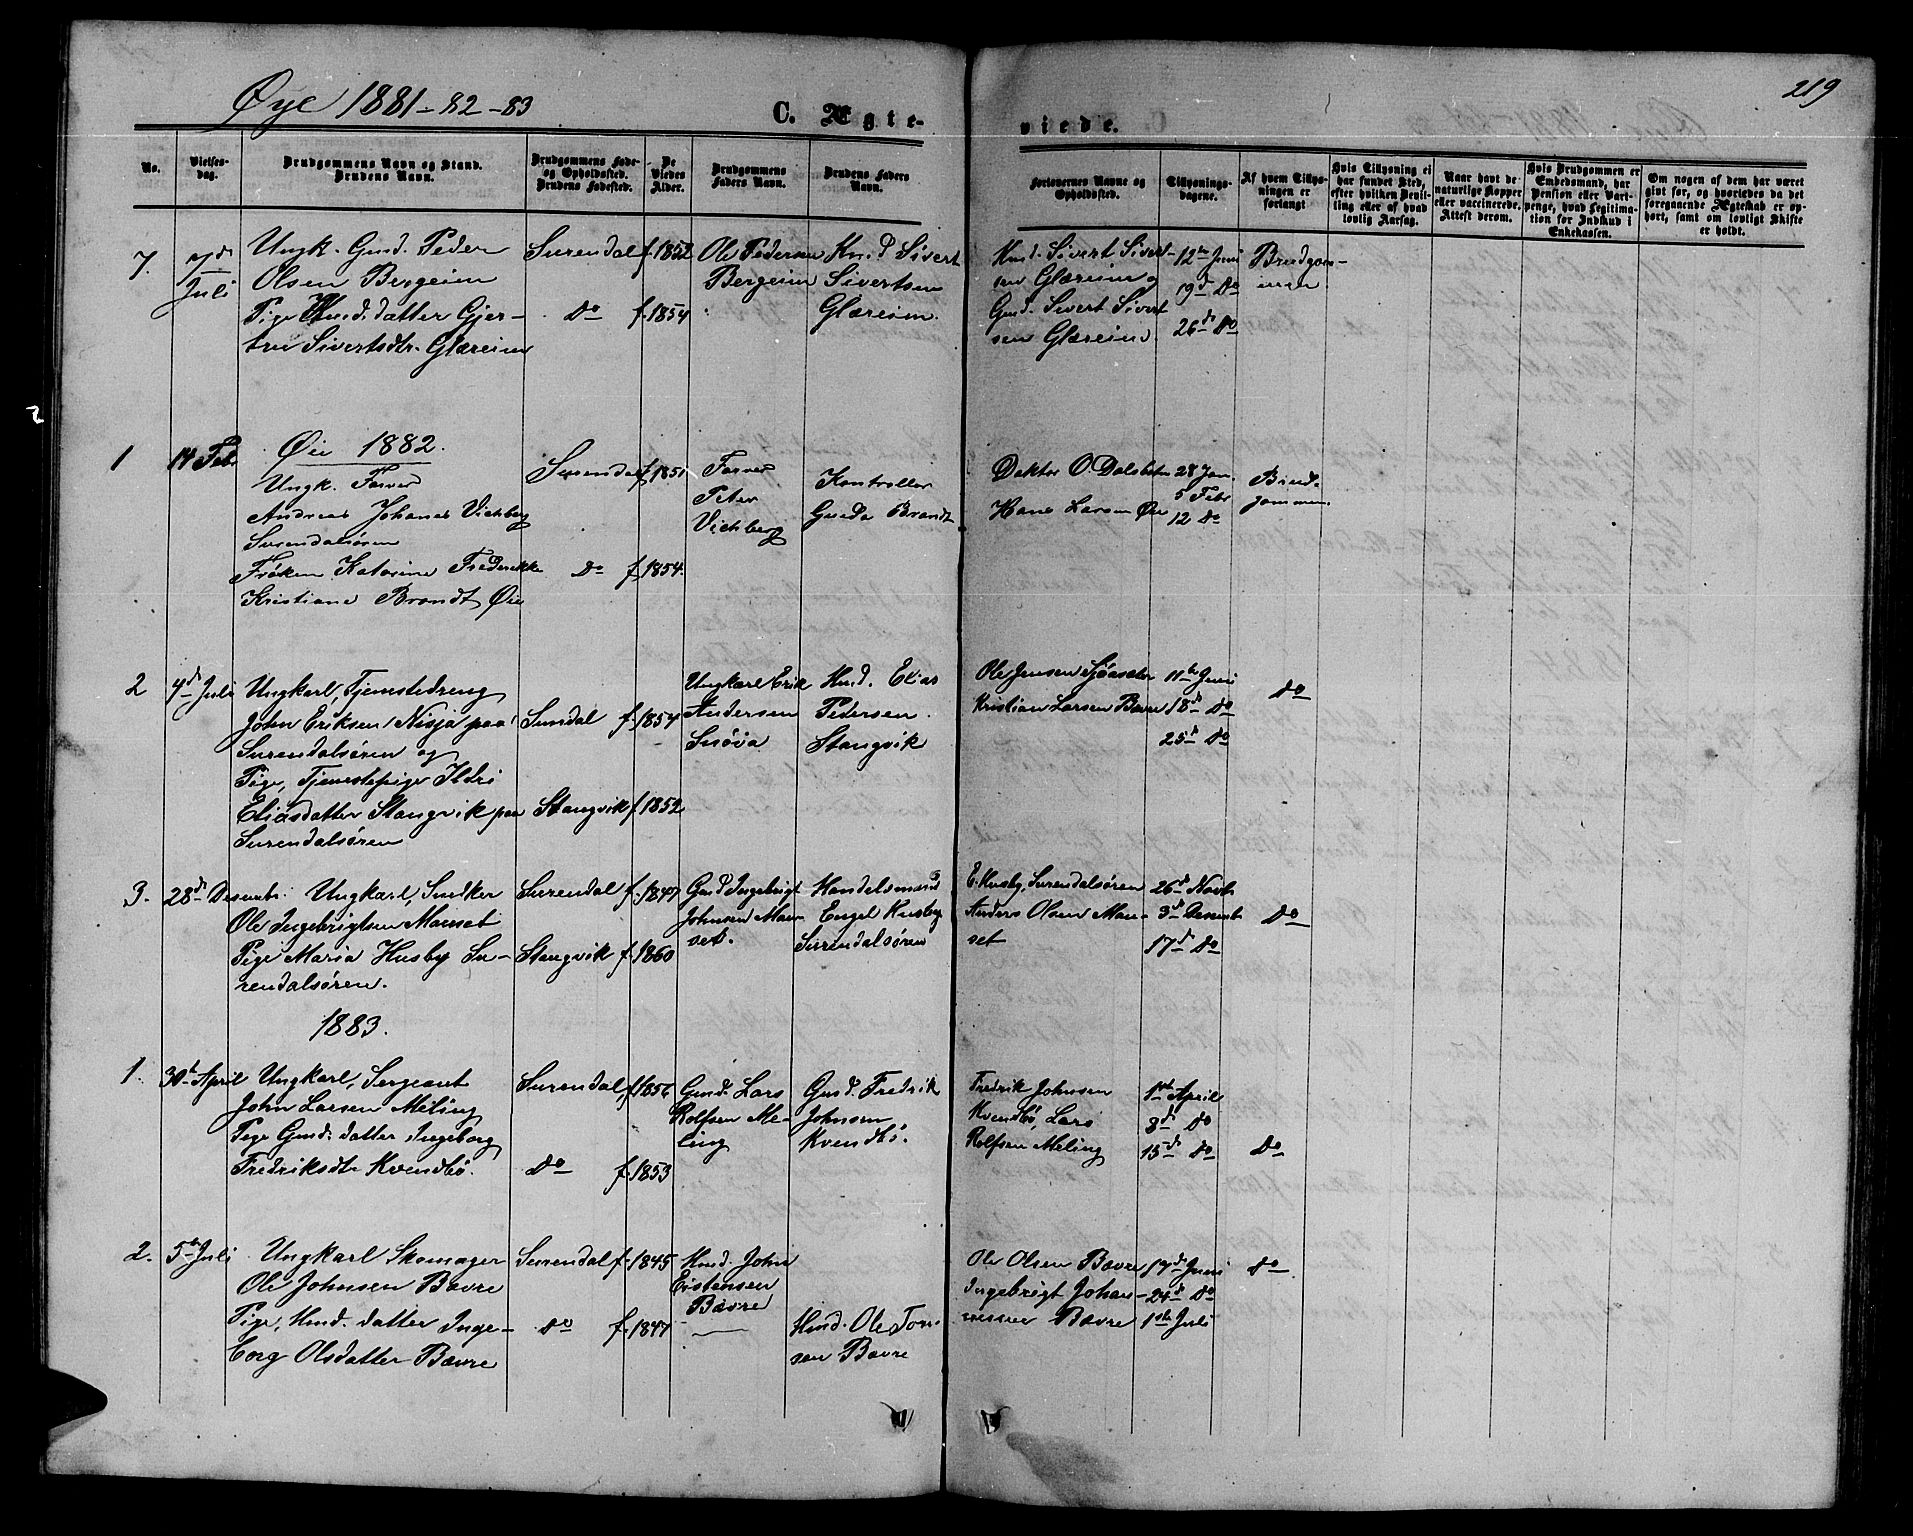 Øye 1881-82-83
C. Ægte-
viede.
C.
219
No.
Vielses-
dag.
Brudgommens Navn og Stand.
Brudens Navn.
Brudgommens Føde-
og Opholdssted.
Brudens Fødested.
De
Viedes
Alder.
Brudgommens
Faders Navn.
Brudens Faders
Navn.
Forlovernes Navne og
Opholdssted.
Tillysnings-
dagene.
Af hvem Tillys-
ningen er
forlangt
Hvis Tillysning ei
har fundet Sted,
efter hvilken Bevil-
ling eller af hvad
lovlig Aarsag.
Naar havt de
naturlige Kopper
eller vaccinerede.
Attest derom.
Hvis Brudgommen er
Embedsmand, har
Pension eller Vart-
penge, hvad Legitima-
tion for Indskud i
Enkekassen.
Om nogen af dem har været
givt før, og hvorledes da det
foregaaende Ægteskab er op-
hørt, samt om lovligt Skifte
er holdt.
7.
7de
Juli
Ungk. Gmd. Peder
Olsen Bergeim
Pige Kmd. datter Gjer-
tru Sivertsdtr. Glæreim
Surendal
Do
f. 1852
f. 1854
Ole Pedersen
Bergeim
Kmd Sivert
Sivertsen
Glæreim.
Kmd. Sivert Sivert-
sen Glæreim og
Gmd. Sivert Sivert
sen Glæreim.
12te Juni
19de Do
26de Do
Brudgom-
men
Øie 1882.
1
14 Feb
Ungk. Farver
Andreas Johanes Vichberg
Surendalsøren
Frøken Katarina Frederikke
Kristiane Brandt Øie
Surendal
Do
f. 1851
f. 1854.
Farver
Peter
Vichberg
Kontrollør
Brandt
Doktor O. Dalsbotn
Hans Larsen Øie
28 Jan.
5 Febr
12 Do
Brud-
gommen.
2
4de Juli
Ungkarl, Tjenstedreng
John Eriksen Nisja paa
Surendalsøren og
Pige, Tjenestepige Ildri
Eliasdatter Stangvik paa
Surendalsøren
Sundal
Stangvik
f. 1854
f. 1852
Ungkarl Erik
Andersen
Snøva
Hmd. Elias
Pedersen
Stangvik
Ole Jensen Sjøasæter
Kristian Larsen Bævre
11te Juni
18de Do
25de Do
Do
3.
28de Desemb.
Ungkarl, Snedker
Ole Ingebrigtsen Mauset
Pige Maria Husby Su-
rendalsøren.
Surendal
Stangvik
f. 1847
f. 1860
Gmd Ingebrigt
Johnsen Mau-
set.
Handelsmand
Engel Husby
Surendalsøren
E. Husby, Surendalsøren
Anders Olsen Mau-
set
26de Novb
3de Desemb
17de Do
Do
1883.
1.
30te April
Ungkarl, Sergeant
John Larsen Meling
Pige Gmd. datter Ingeborg
Fredriksdtr Kvendbø.
Surendal,
Do
f. 1856
f. 1853
Gmd. Lars
Rolfsen Me-
ling
Gmd. Fredrik
Johnsen
Kvendbø.
Fredrik Johnsen
Kvendbø, Lars
Rolfsen Meling
1ste April
8de Do
15de Do
Do
2.
5te Juli
Ungkarl Skomager
Ole Johnsen Bævre
Pige, Hmd. datter Inge-
borg Olsdatter Bævre
Surendal
Do
f. 1845
f. 1847
Hmd. John
Eistensen
Bævre
Hmd. Ole Tor-
sen Bævre
Ole Olsen Bævre
Ingebrigt Johan-
nessen Bævre
17de Juni
24de Do
1ste Juli
Do